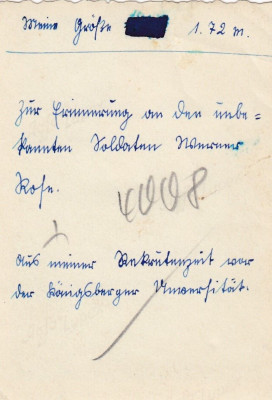 Meine Größe 1.72 m.
Zur Erinnerung an den unbe=
kannten Soldaten Werner
Rose.
4008
Aus meiner Rekrutenzeit vor
der Königsberger Unversität.